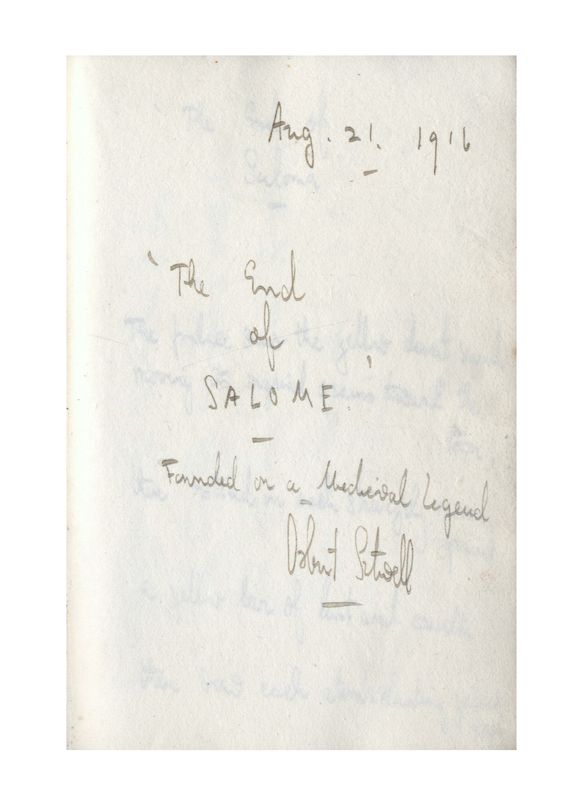 Aug. 21. 1916
'The End
of
SALOME.'
Founded on a Medieval Legend
Osbert Sitwell